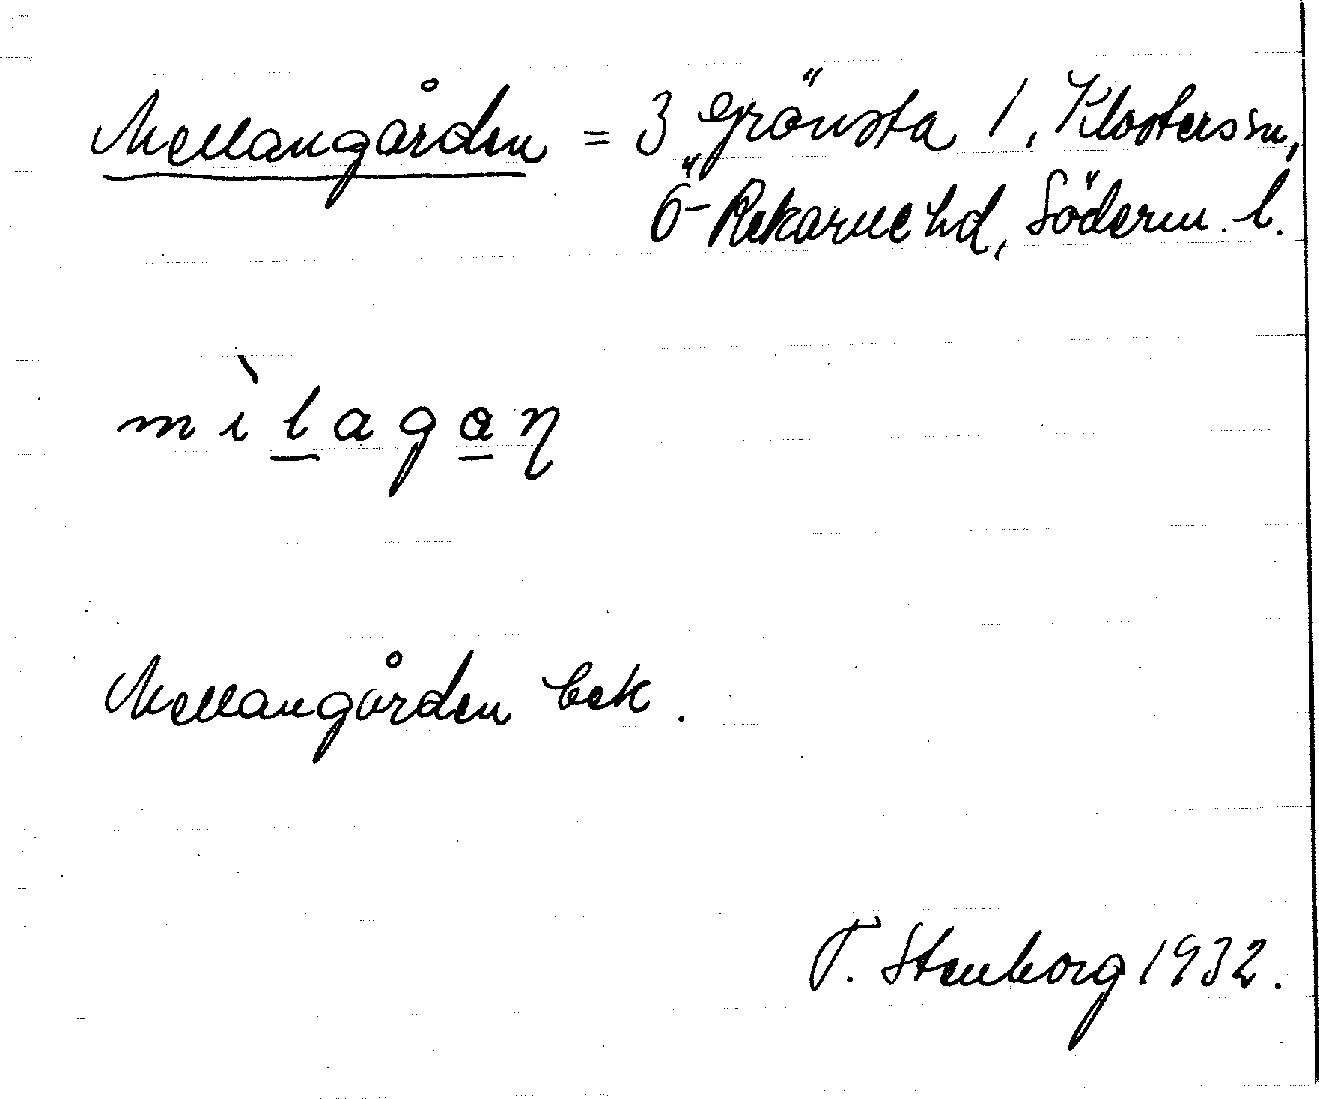 Mellangården = 3 Grönsta 1, Klosters sn,
Ö-Rekarne hd, Söderm. l.
mìlagaŋ
Mellangården bek.
T. Stenborg 1932.